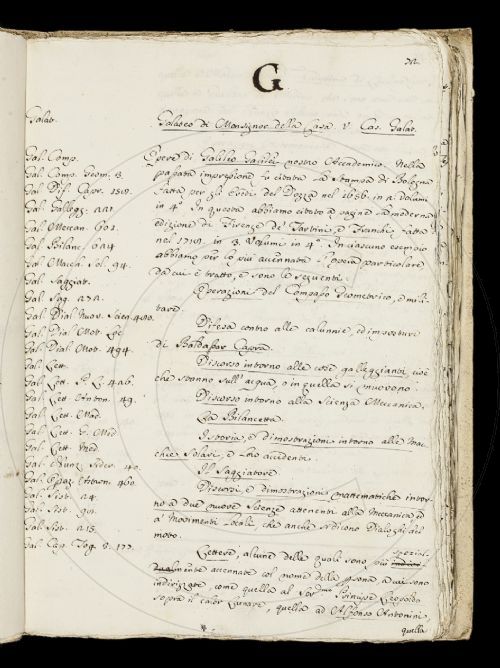 72
G
Galat.
Galateo di Monsignor della Casa v. Cas. Galat.
Gal. Comp.
Gal. Comp. Geom. 3.
Gal. Dif. Capr. 159.
Gal. Gallegg. 221
Gal. Meccan. 601.
Gal. Bilanc. 624
Gal. Macch. Sol. 94.
Gal. Saggiat.
Gal. Sag. 272.
Gal. Dial. Nuov. Scien. 480.
Gal. Dial. Mot.
Gal. Dial. Mot. 494.
Gal. Lett.
Gal. Lett. P. L. 446.
Gal. Lett. Anton. 49.
Gal. Lett. Mad.
Gal. Lett. G. Mad.
Gal. Lett. Med.
Gal. Nunz. Sider. 40.
Gal. Astron. 460.
Gal. Sist. 24.
Gal. Sist. 90.
Gal. Sist. 215.
Gal. Cap. Tog. 3. 177.
Opere di Galileo Galilei nostro Accademico. Nella
passata impressione si citata la Stampa di Bologna
fatta per gli Eredi del Dozza nel 1656. in 2. Volumi
in 4.° In questa abbiamo citato a pagine la moderna
edizione di Firenze de' Tartini, e Franchi fatta
nel 1718. in 3. Volumi in 4.° In ciascuno esempio
abbiamo per lo più accennata l'Opera particolare
da cui è tratto, e sono le seguenti.
Operazioni del Compasso Geometrico, e mili-
tare.
Difesa contro alle calunnie, ed imposture
di Baldassar Capra.
Discorso intorno alle cose galleggianti, cioè
che stanno sull' acqua, o in quella si muovono.
Discorso intorno alla Scienza Meccanica.
La Bilancetta.
Istoria, e dimostrazioni intorno alle Mac-
chie Solari, e loro accidenti.
Il Saggiatore
Discorsi, e dimostrazioni matematiche intor-
no a due nuove Scienze attenenti alla Meccanica, e
a' Movimenti Locali, che anche si dicono Dialoghi del
moto.
Lettere, alcune delle quali sono più special-
mente accennate col nome della persona, a cui sono
indirizzate, come quella al Ser.mo Principe Leopoldo
sopra il calor Lunare, quella ad Alfonso Antonini,
quella